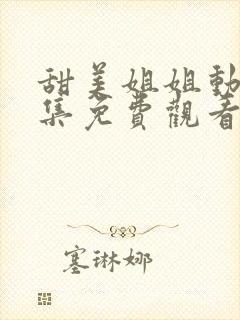 甜美姐姐動
集免費觀看
塞琳娜